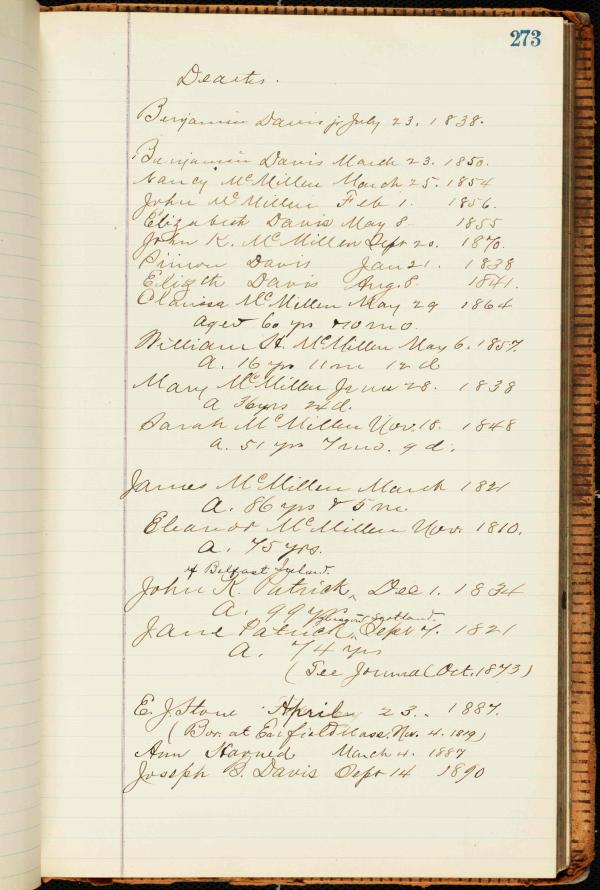 273
Deaths.
Benjamin Davis jr July 23. 1838.
Benjamin Davis March 23. 1850.
Nancy McMillen March 25. 1854
John McMillen Feb 1. 1856.
Elizabeth Davis May 8 1855
John K. McMillen Sept 20. 1870.
Simon Davis Jan 21. 1838
Elizth Davis Aug. 8 1841.
Clarissa McMillen May 29 1864
aged 60 yrs & 10 mo.
William H. McMillen May 6. 1857.
a. 16 yrs 11 m 12 d
Mary McMillen June 28. 1838
a 36 yrs 24 d.
Sarah McMillen Nov. 18. 1848
a. 51 yrs 7 mo. 9 d.
James McMillen March 1821
a. 86 yrs & 5 m.
Eleanor McMillen Nov. 1810.
a. 75 yrs.
of Belfast Ireland.
John K. Patrick, Dec 1. 1834
a. 99 yrs
Scotland.
Jane Patrick, Sept 7. 1821
a. 74 yrs
(See Journal Oct. 1873)
E. J. Stone April 23.. 1887.
(Bor. at Enfield Mass. Nov. 4. 1819)
Ann Harned March 4. 1887
Joseph B. Davis Sept 14 1890